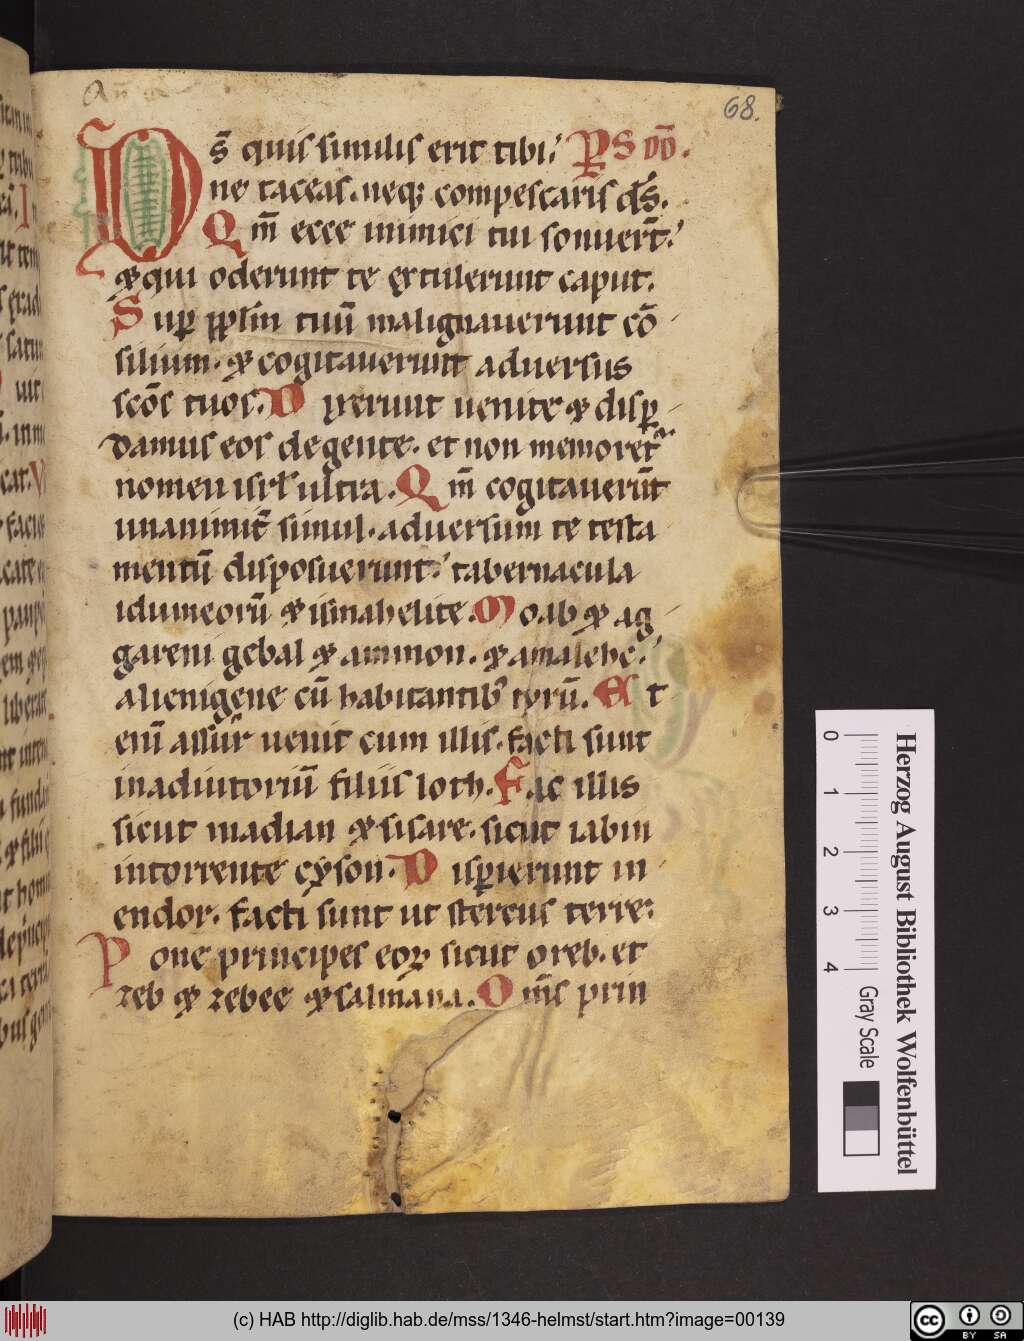 Añ
68.
Ds̄ quis similis erit tibi? P̱S D̄D̄.
ne taceas. neq; compescaris ds̄.
Qm̄ ecce inimici tui sonuer̄t:
& qui oderunt te extulerunt caput.
Suꝑ ꝓplm̄ tuū malignauerunt cō
silium. & cogitauerunt aduersus
scōs tuos. Dixerunt uenite & disꝑ
damus eos de gente. et non memoret᷑
nomen isrl̄ ultra. Qm̄ cogitauerūt
unanimit̄ simul. aduersum te testa
mentū disposuerunt: tabernacula
idumeorū & ismahelite. Moab & ag
gareni gebal & ammon. & amaleheͨ:
alienigene cū habitantib᷒ tyrū. Et
enī assur uenit cum illis. facti sunt
in adiutoriū filiis loth. Fac illis
sicut madian & sisare. sicut iabin
in torrente cyson. Disꝑierunt in
endor. facti sunt ut stercus terre:
Pone principes eoꝝ sicut oreb. et
zeb & zebee & salmana. Om̄is prin
Herzog August Bibliothek Wolfenbüttel
0 1 2 3 4
Gray Scale
(c) HAB http://diglib.hab.de/mss/1346-helmst/start.htm?image=00139
cc BY SA